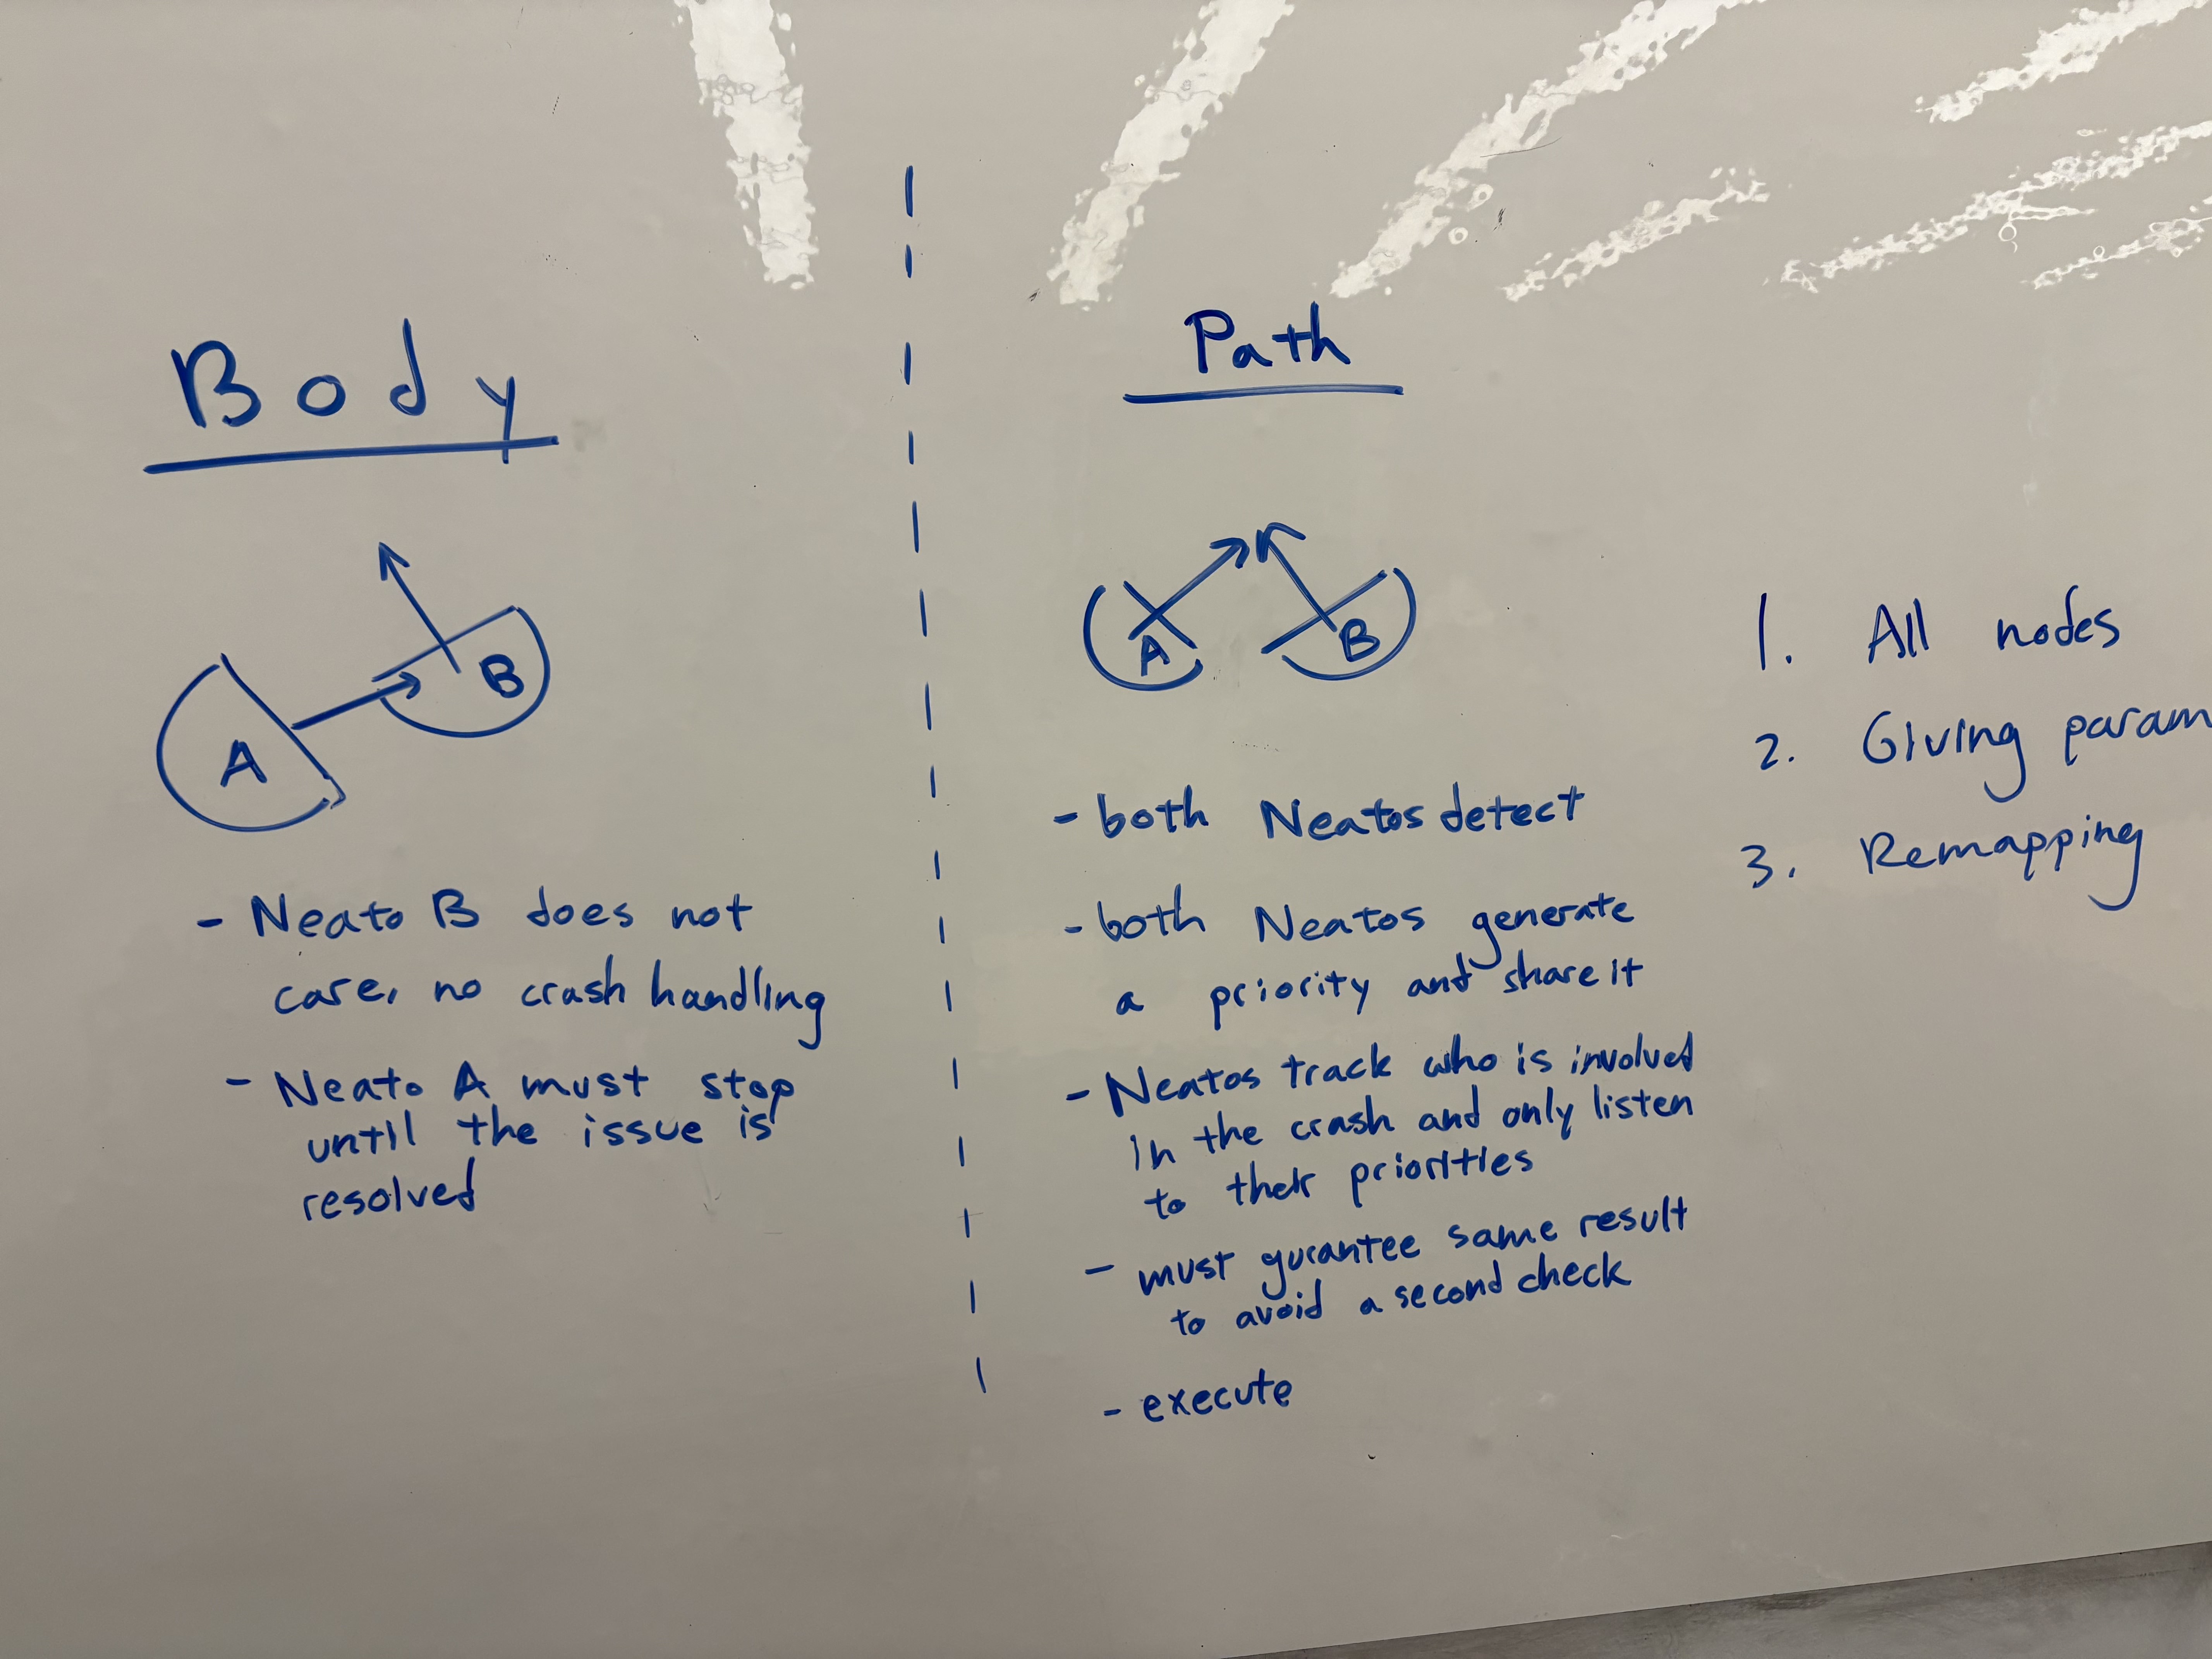 Body
A
B
- Neato B does not
care, no crash handling
- Neato A must stop
until the issue is
resolved
Path
A
B
- both Neatos detect
- both Neatos generate
a priority and share it
- Neatos track who is involved
in the crash and only listen
to their priorities
- must gurantee same result
to avoid a second check
- execute
1. All nodes
2. Giving param
3. Remapping